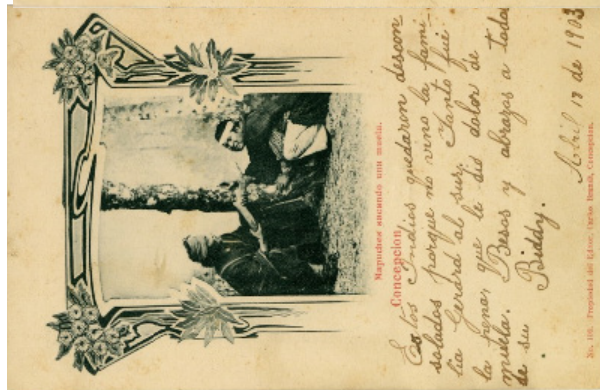 Mapuches sacando una muela.
Concepcion
Estos Indios quedaron descon-
solados porque no vino la fami-
lia Gerard al sur. Tanto fué
la pena, que le dió dolor de
muela. Besos y abrazos a todos
de su Biddy.
Abril 18 de 1903
No. 106. Propiedad del Editor, Carlos Brandt, Concepcion.